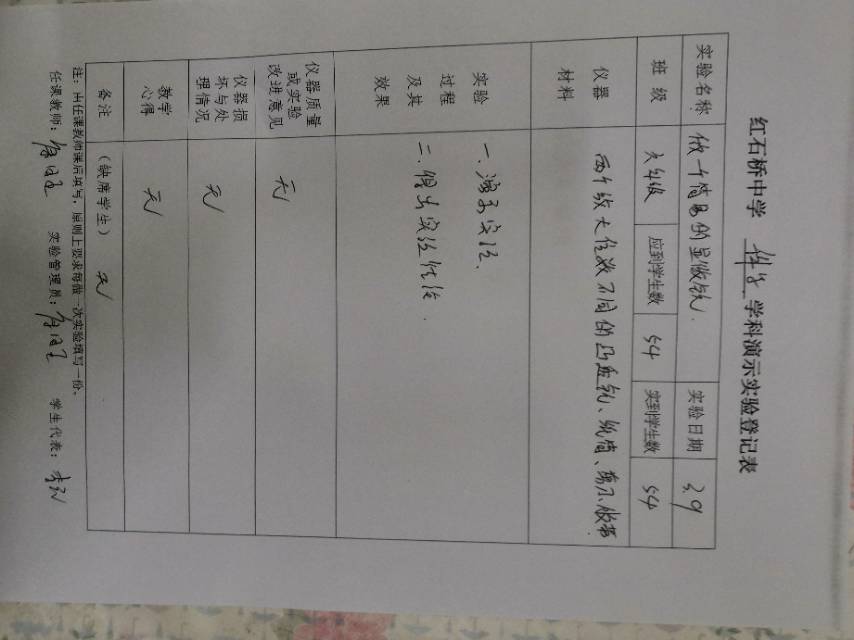 红石桥中学 科学 学科演示实验登记表
实验名称 做个简易的显微镜. 实验日期 3.9
班 级 六年级 应到学生数 54 实到学生数 54
仪器
材料
两个放大倍数不同的凸透镜、纸筒、剪刀、胶带
实验
过程
及其
效果
一、演示实验.
二、得出实验结论.
仪器质量
或实验
改进意见
无
仪器损
坏与处
理情况
无
教学
心得
无
备注 (缺席学生) 无
注:由任课教师课后填写,原则上要求每做一次实验填写一份。
任课教师: 实验管理员: 学生代表: